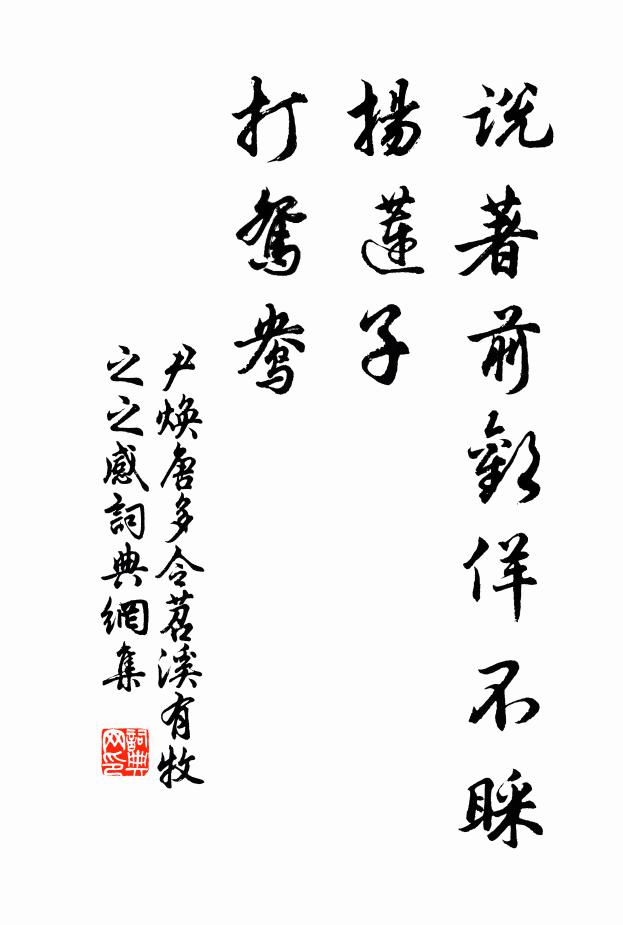 說著前歡佯不睬
揚蓮子
打鴛鴦
尹煥唐多令苕溪有牧
之之感詞典網集
詞典
网印